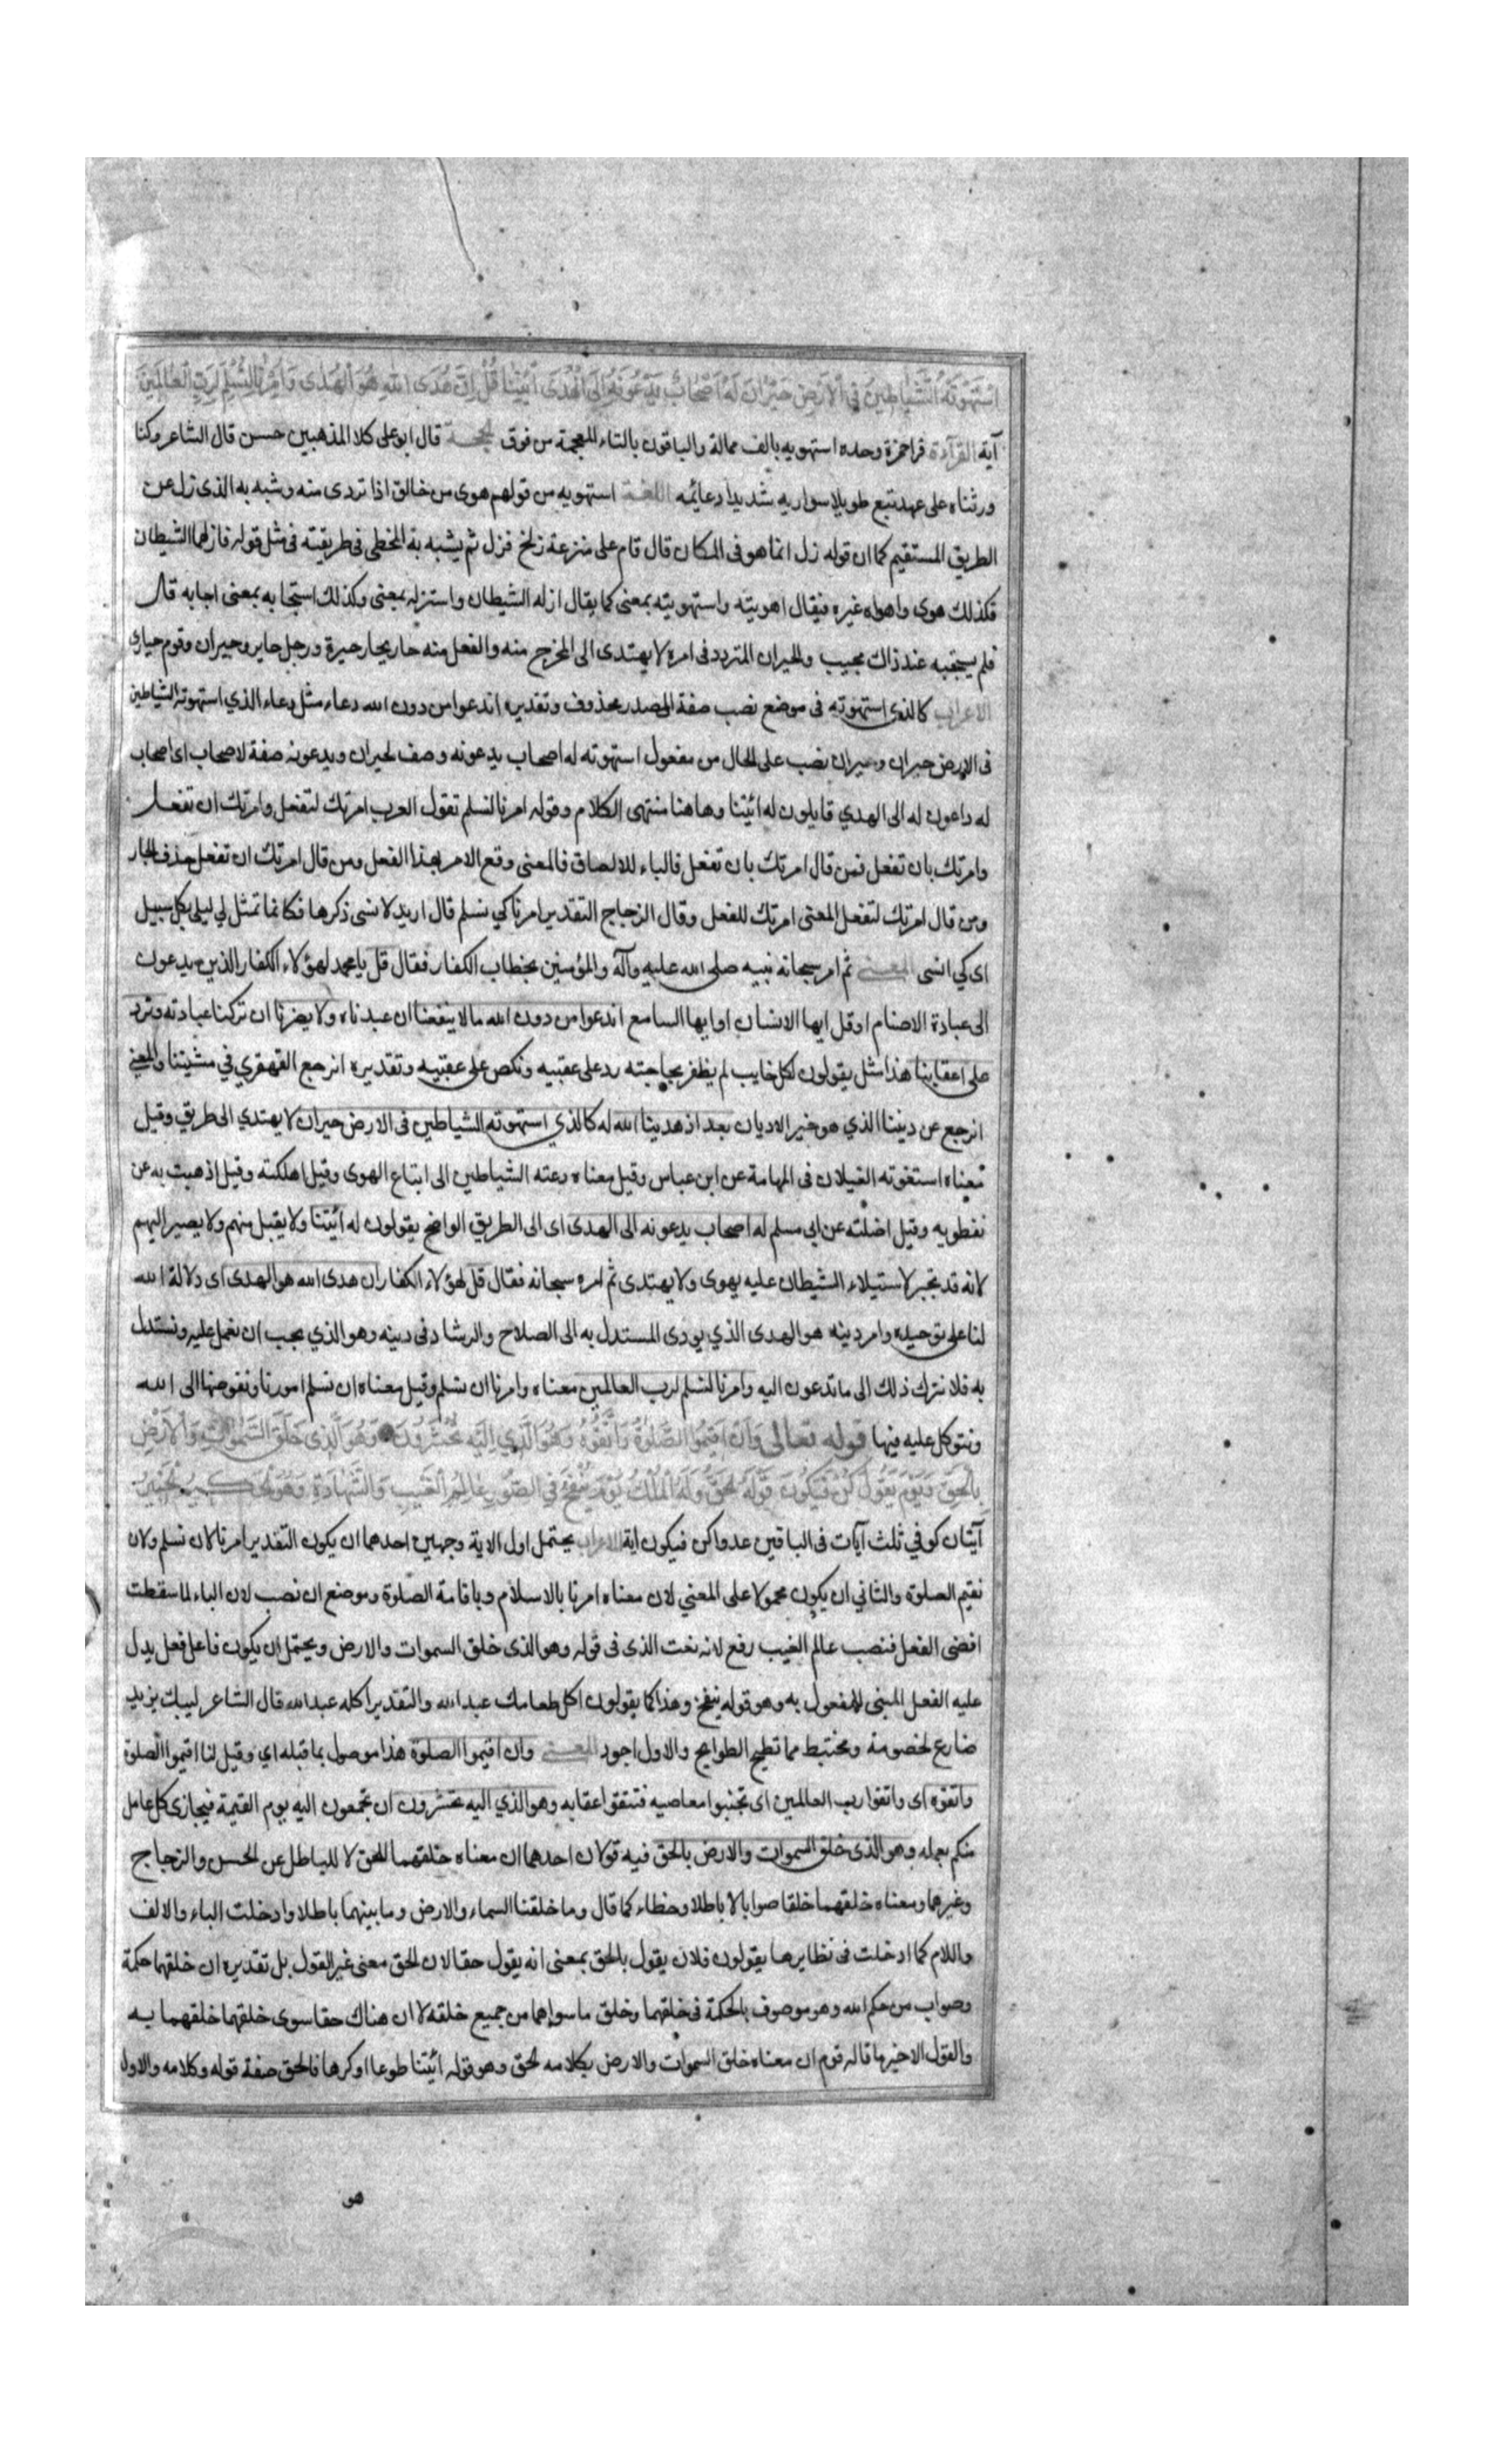 اسْتَهْوَتْهُ الشَّيَاطِينُ فِي الْأَرْضِ حَيْرَانَ لَهُ أَصْحَابٌ يَدْعُونَهُ إِلَى الْهُدَى ائْتِنَا قُلْ إِنَّ هُدَى اللَّهِ هُوَ الْهُدَى وَأُمِرْنَا لِنُسْلِمَ لِرَبِّ الْعَالَمِينَ
آية القراءة قراحمزة وحده استهويه بالف ممالة والباقون بالتاء المعجمة من فوق الحجة قال ابوعلى كلا المذهبين حسن قال الشاعر وكنا
ورثناه على عهد تبع طويلا سواريه شديدا دعائمه اللغة استهويه من قولهم هوى من حالق اذا تردى منه وشبه به الذى زل عن
الطريق المستقيم كما ان قوله زل انما هو فى المكان قال قام على منزعة زلخ فزل ثم يشبه به المخطى فى طريقته فى مثل قوله فازلهما الشيطان
فكذلك هوى واهواه غيره فيقال اهويته واستهويته بمعنى كما يقال ازله الشيطان واستزله بمعنى وكذلك استجابه بمعنى اجابه قال
فلم يستجبه عند ذاك مجيب والحيران المتردد فى امره لا يهتدى الى المخرج منه والفعل منه حار يحار حيرة ورجل حاير وحيران وقوم حيارى
الاعراب كالذى استهوته فى موضع نصب صفة المصدر محذوف وتقديره اندعوا من دون الله دعاء مثل دعاء الذي استهوته الشياطين
فى الارض حيران وحيران نصب على الحال من مفعول استهوته له اصحاب يدعونه وصف لحيران ويدعونه صفة لاصحاب اى اصحاب
له داعون له الى الهدي قايلون له ائتنا وهاهنا منتهى الكلام وقوله امرنا لنسلم تقول العرب امرتك لتفعل وامرتك ان تفعل
وامرتك بان تفعل فمن قال امرتك بان تفعل فالباء للالصاق فالمعنى وقع الامر بهذا الفعل ومن قال امرتك ان تفعل حذف الجار
ومن قال امرتك لتفعل المعنى امرتك للفعل وقال الزجاج التقدير امرنا كي نسلم قال اريد لانسى ذكرها فكانما تمثل لي ليلى بكل سبيل
اى كي انسى المعنى ثم امر سبحانه نبيه صلى الله عليه وآله والمؤمنين بخطاب الكفار فقال قل يا محمد لهؤلاء الكفار الذين يدعون
الى عبادة الاصنام او قل ايها الانسان او ايها السامع اندعوا من دون الله ما لا ينفعنا ان عبدناه ولا يضرنا ان تركنا عبادته ونرد
على اعقابنا هذا مثل يقولون لكل خايب لم يظفر بحاجته رد على عقبيه ونكص على عقبيه وتقديره انرجع القهقري في مشيتنا والمعنى
انرجع عن ديننا الذي هو خير الاديان بعد اذ هدينا الله له كالذي استهوته الشياطين فى الارض حيران لا يهتدي الى طريق وقيل
معناه استغوته الغيلان فى المهامة عن ابن عباس وقيل معناه دعته الشياطين الى ابتاع الهوى وقيل اهلكته وقيل اذهبت به عن
نفطويه وقيل اضلته عن ابي مسلم له اصحاب يدعونه الى الهدى اى الى الطريق الواضح يقولون له ائتنا ولا يقبل منهم ولا يصير اليهم
لانه قد تحير لاستيلاء الشيطان عليه يهوى ولا يهتدى ثم امره سبحانه فقال قل لهؤلاء الكفار ان هدى الله هو الهدى اى دلالة الله
لنا على توحيده وامر دينه هو الهدى الذي يودى المستدل به الى الصلاح والرشاد فى دينه وهو الذي يجب ان نعمل عليه ونستدل
به فلا نترك ذلك الى ما تدعون اليه وامرنا لنسلم لرب العالمين معناه وامرنا ان نسلم وقيل معناه ان نسلم امورنا ونفوضها الى الله
ونتوكل عليه فيها قوله تعالى وَأَنْ أَقِيمُوا الصَّلَوةَ وَاتَّقُوهُ وَهُوَ الَّذِي إِلَيْهِ تُحْشَرُونَ وَهُوَ الَّذِى خَلَقَ السَّمَوَاتِ وَالْأَرْضَ
بِالْحَقِّ وَيَوْمَ يَقُولُ كُنْ فَيَكُونُ قَوْلُهُ الْحَقُّ وَلَهُ الْمُلْكُ يَوْمَ يُنْفَخُ فِي الصُّورِ عَالِمُ الْغَيْبِ وَالشَّهَادَةِ وَهُوَ الْحَكِيمُ الْخَبِيرُ
آيتان كوفي ثلث آيات فى الباقين عدوا كن فيكون اية الاعراب يحتمل اول الاية وجهين احدهما ان يكون التقدير امرنا لان نسلم ولان
نقيم الصلوة والثاني ان يكون محمولا على المعني لان معناه امرنا بالاسلام وباقامة الصلوة وموضع ان نصب لان الباء لما سقطت
افضى الفعل فنصب عالم الغيب رفع لانه نعت الذى فى قوله وهو الذى خلق السموات والارض ويحتمل ان يكون فاعل فعل يدل
عليه الفعل المبنى للمفعول به وهو قوله ينفخ وهذا كما يقولون اكل طعامك عبدالله والتقدير اكله عبدالله قال الشاعر ليبك يزيد
ضارع لخصومة ومختبط مما تطيح الطوايح والاول اجود المعنى وان اقيموا الصلوة هذا موصول بما قبله اي وقيل لنا اقيموا الصلوة
واتقوه اى واتقوا رب العالمين اى تجنبوا معاصيه فتتقوا عقابه وهو الذي اليه تحشرون ان تجمعون اليه يوم القيمة فيجازى كل عامل
منكم بعمله وهو الذى خلق السموات والارض بالحق فيه قولان احدهما ان معناه خلقهما للحق لا للباطل عن الحسن والزجاج
وغيرهما ومعناه خلقهما خلقا صوابا لا باطلا وخطاء كما قال وما خلقنا السماء والارض وما بينهما باطلا وادخلت الباء والالف
واللام كما ادخلت فى نظايرها يقولون فلان يقول بالحق بمعنى انه يقول حقا لان الحق معنى غير القول بل تقديره ان خلقهما حكمة
وصواب من حكم الله وهو موصوف بالحكمة فى خلقهما وخلق ما سواهما من جميع خلقه لا ان هناك حقا سوى خلقهما خلقهما به
والقول الاخير ما قاله قوم ان معناه خلق السموات والارض بكلامه الحق وهو قوله ائتنا طوعا او كرها فالحق صفة قوله وكلامه والاول
هو